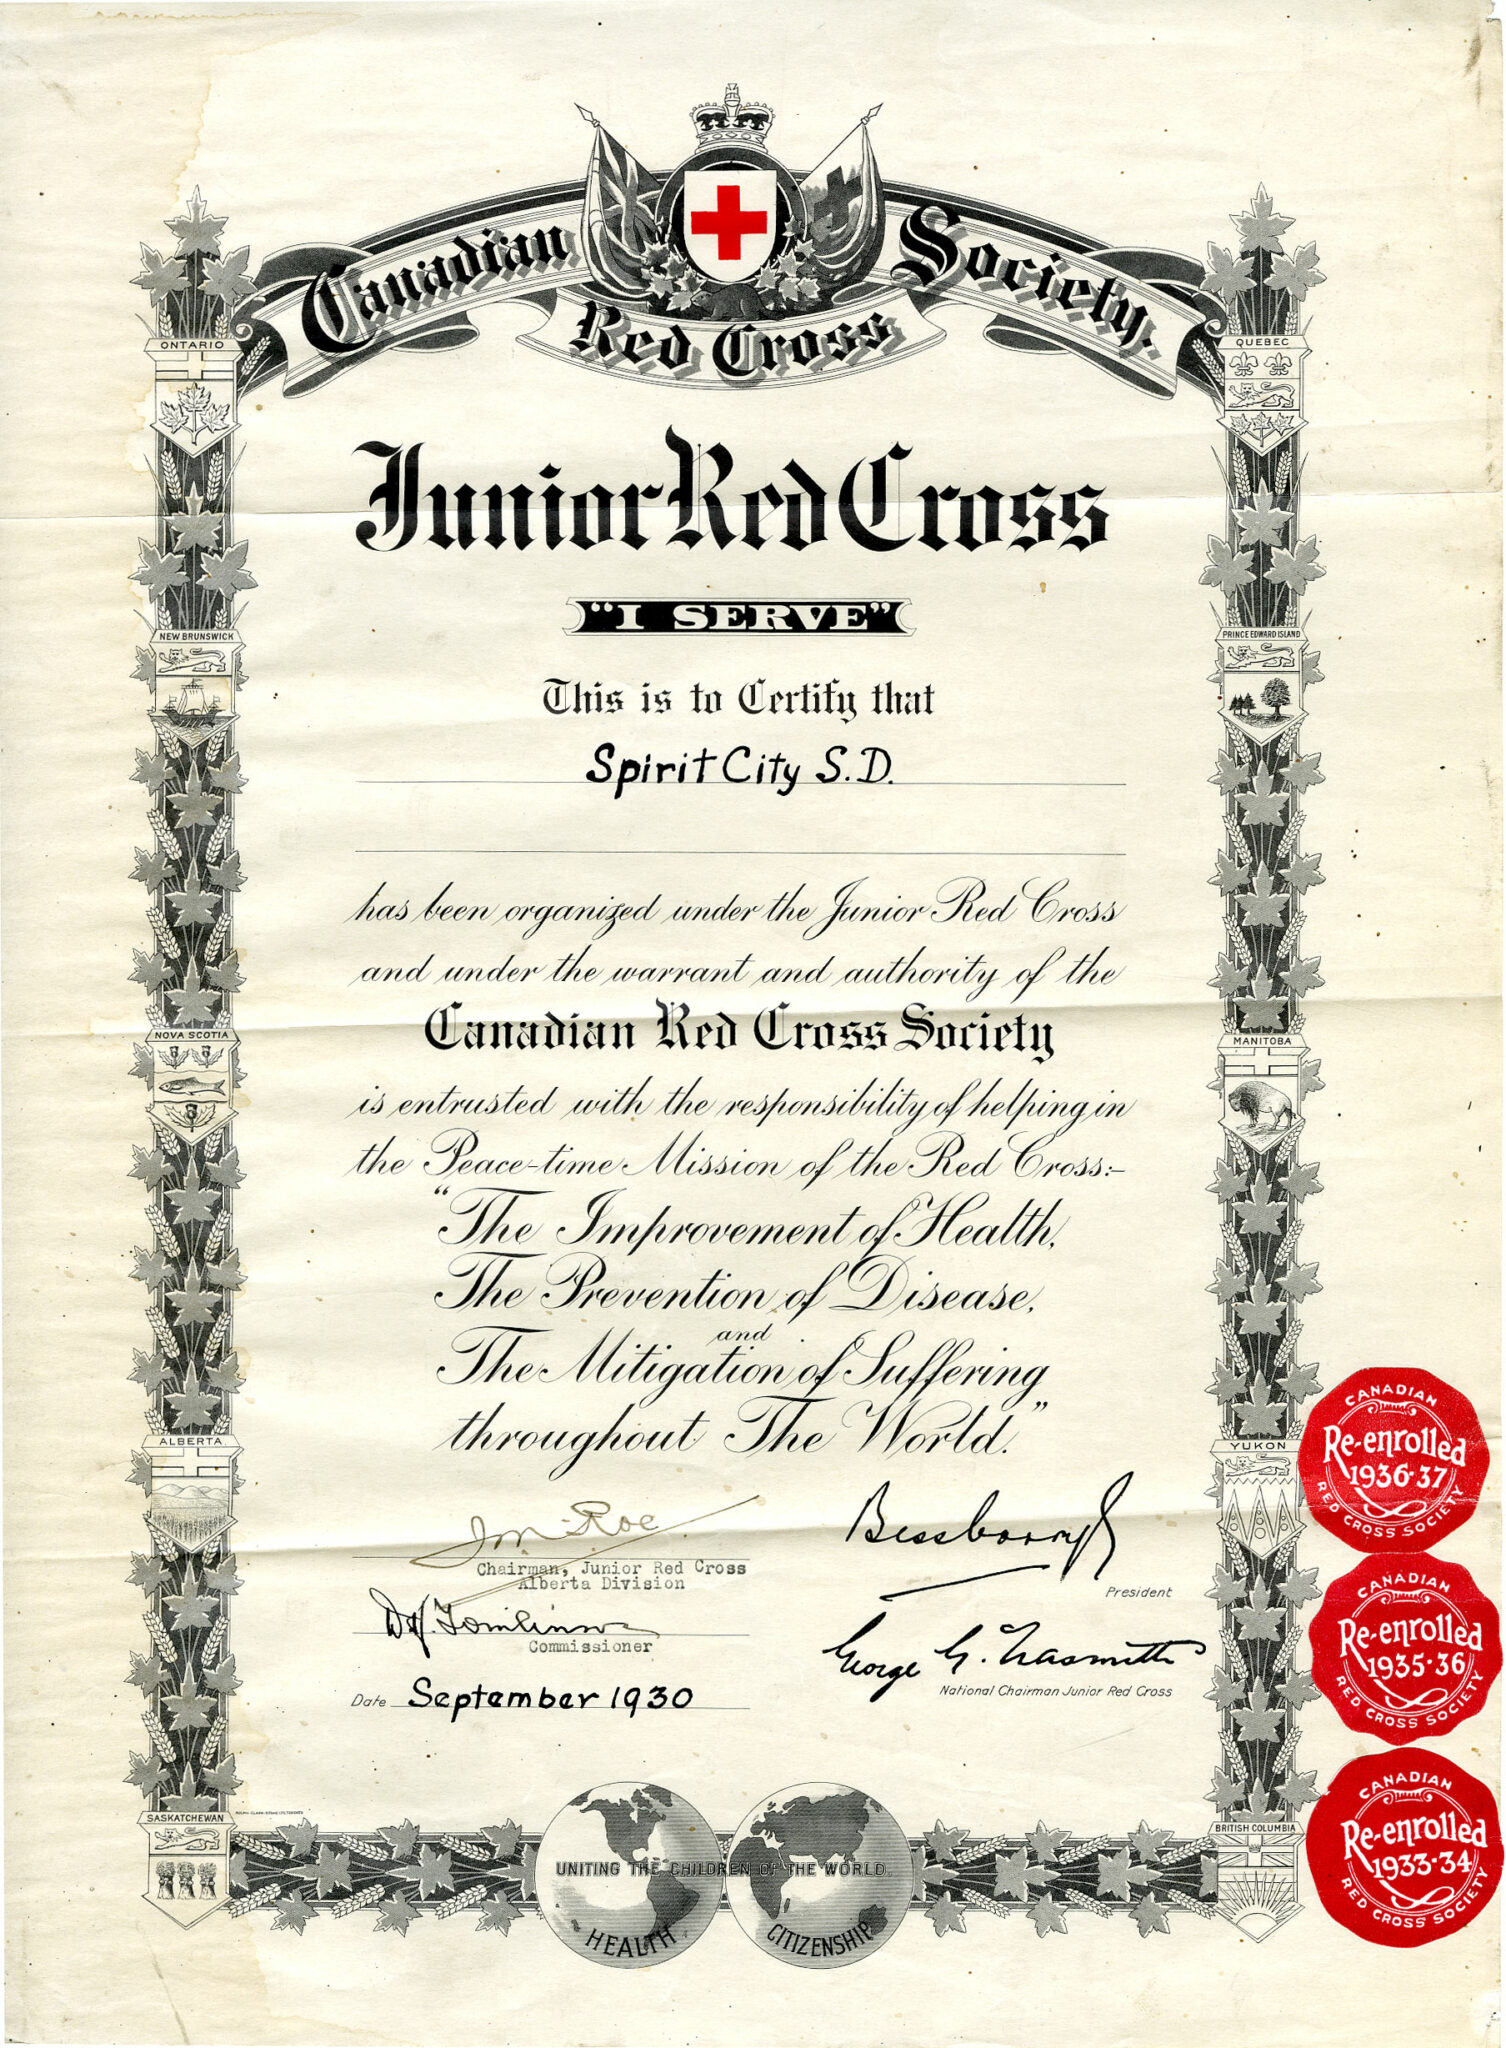 Canadian Red Cross Society.
Junior Red Cross
"I SERVE"
This is to Certify that
Spirit City S.D.
has been organized under the Junior Red Cross
and under the warrant and authority of the
Canadian Red Cross Society
is entrusted with the responsibility of helping in
the Peace-time Mission of the Red Cross:-
"The Improvement of Health,
The Prevention of Disease,
and
The Mitigation of Suffering
throughout The World."
Bessborough
President
Chairman, Junior Red Cross
Alberta Division
Tomlinson
Commissioner
George G. Nasmith
National Chairman Junior Red Cross
Date September 1930
UNITING THE CHILDREN OF THE WORLD.
HEALTH
CITIZENSHIP
ONTARIO
NEW BRUNSWICK
NOVA SCOTIA
ALBERTA
SASKATCHEWAN
QUEBEC
PRINCE EDWARD ISLAND
MANITOBA
YUKON
BRITISH COLUMBIA
CANADIAN
Re-enrolled
1936-37
RED CROSS SOCIETY
CANADIAN
Re-enrolled
1935-36
RED CROSS SOCIETY
CANADIAN
Re-enrolled
1933-34
RED CROSS SOCIETY